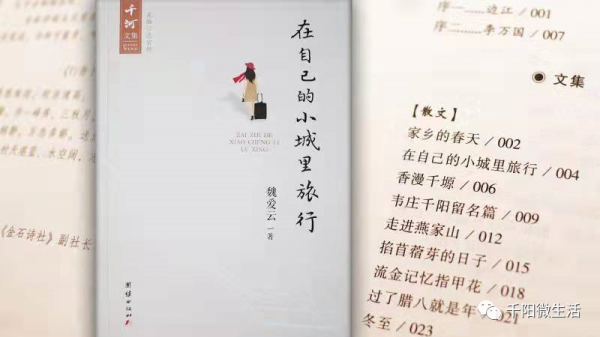 《金石诗社》副社长
千河
文集
在自己的小城里旅行
XIAO CHENG LI
LU XING
魏爱云 一 著
团结出版社
序一……边江 / 001
序二……李万国 / 007
◉ 文集
【散文】
家乡的春天 / 002
在自己的小城里旅行 / 004
香漫千塬 / 006
韦庄千阳留名篇 / 009
走进燕家山 / 012
掐苜蓿芽的日子 / 015
流金记忆指甲花 / 018
过了腊八就是年 / 021
冬至 / 023
千阳微生活